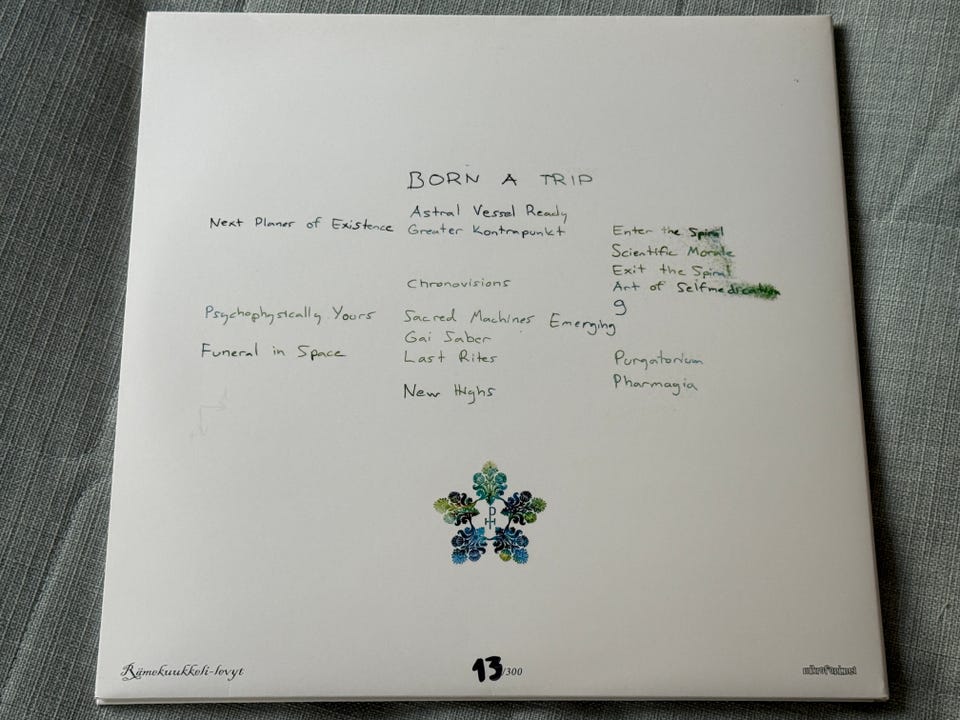 BORN A TRIP
Next Planer of Existence
Astral Vessel Ready
Greater Kontrapunkt
Enter the Spiral
Scientific Morale
Exit the Spiral
Art of Selfmedication
Chronovisions
9
Psychophysically Yours
Sacred Machines Emerging
Gai Saber
Funeral in Space
Last Rites
Purgatorium
New Highs
Pharmagia
PH
Rämekuukkeli-levyt
13/300